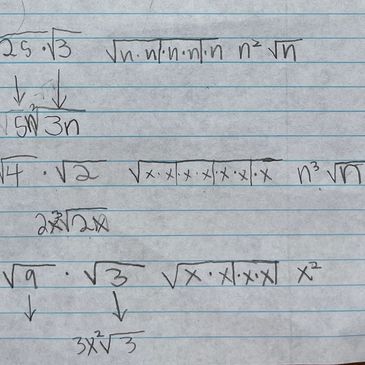 √25 · √3 √n·n|·n·n|·n n² √n
↓ ↓
5n²√3n
√4 · √2 √x·x|x·x|x·x|·x n³ √n
2x³√2x
√9 · √3 √x·x|x·x| x²
↓ ↓
3x²√3